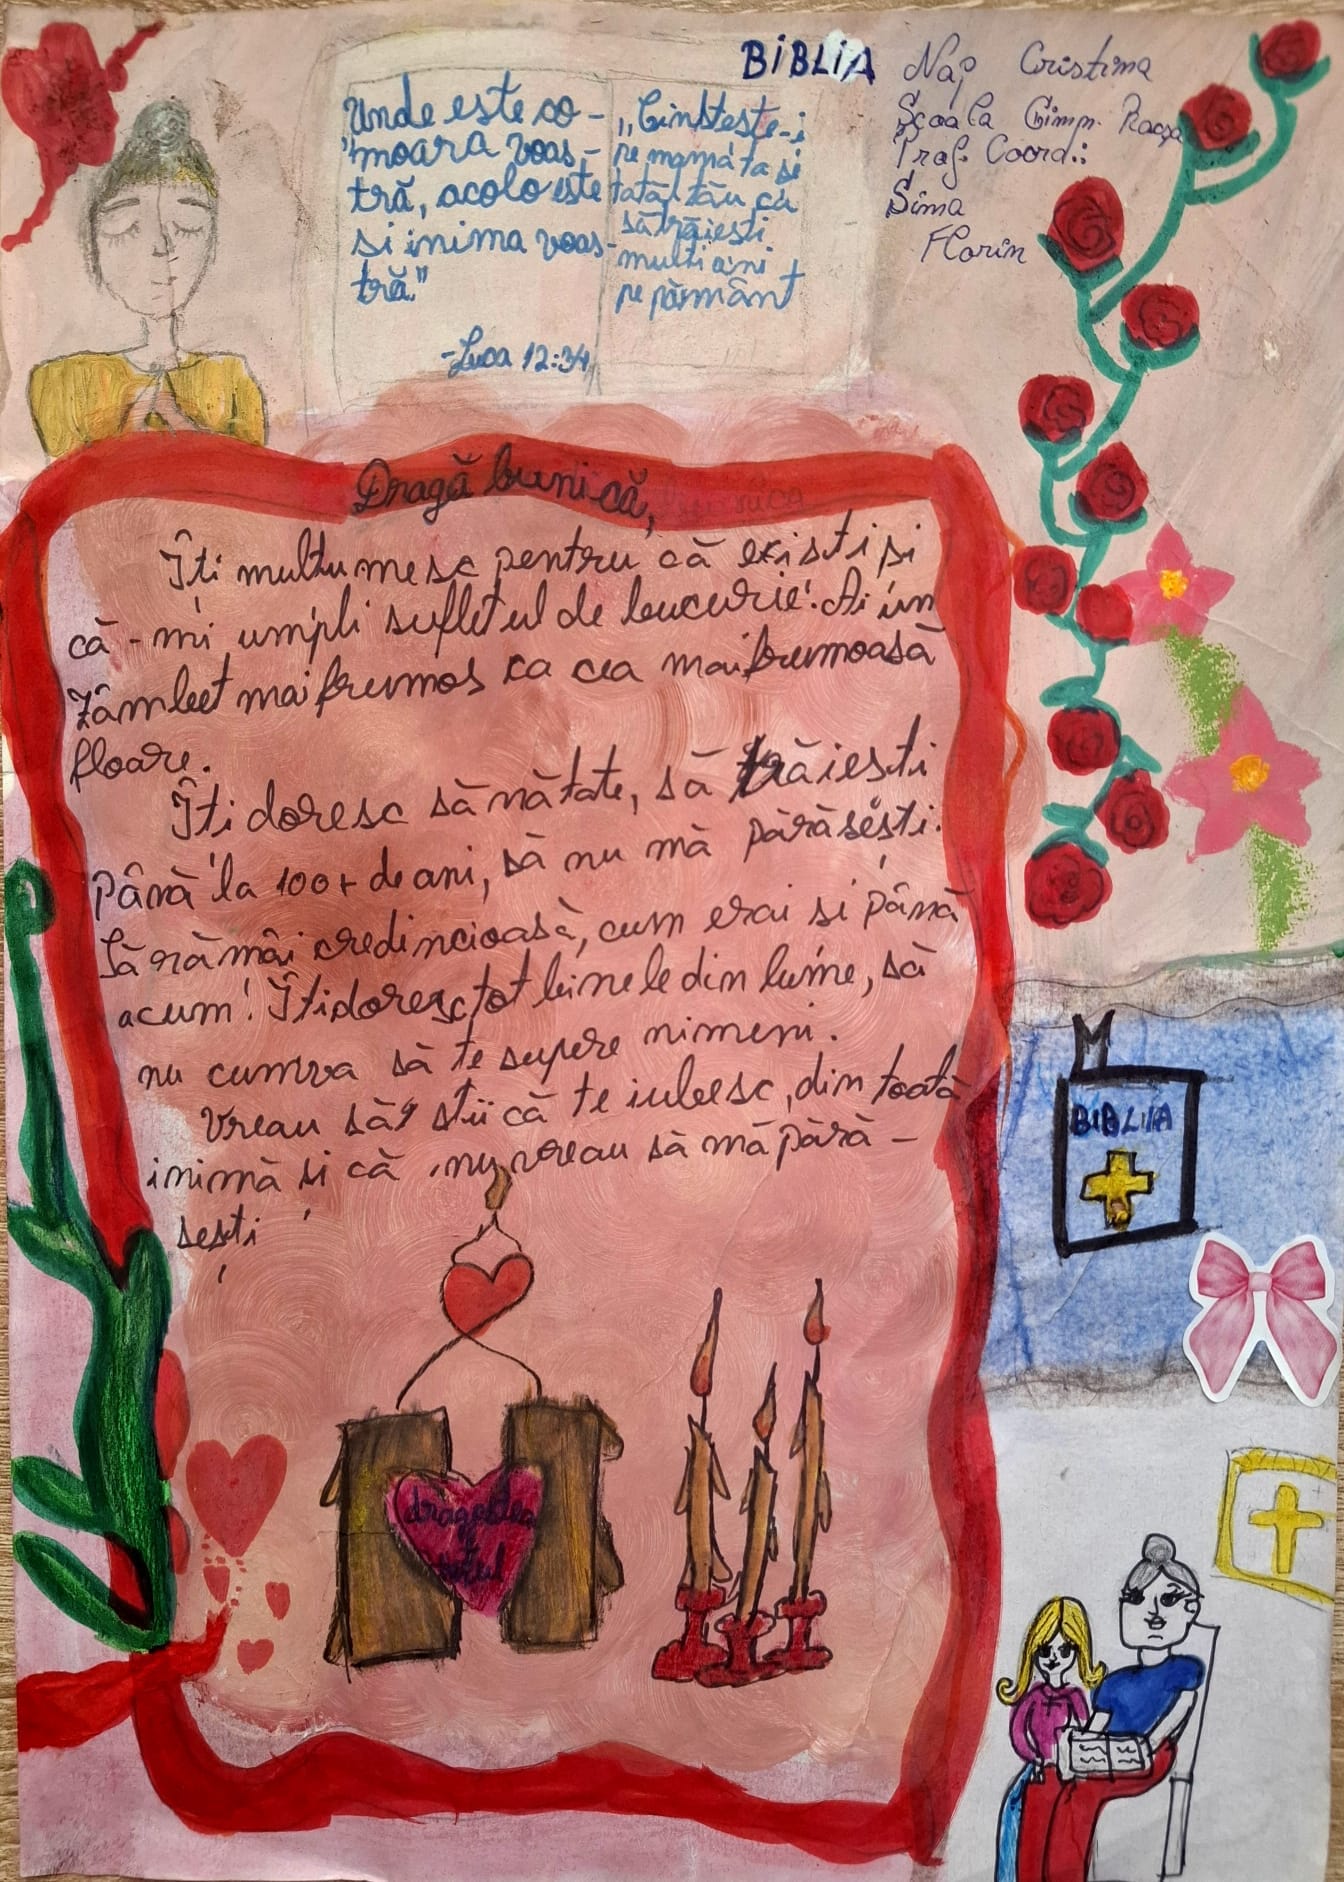 BIBLIA
Unde este co-
"moara voas-
tră, acolo este
si inima voas-
tră."
-Luca 12:34
„Cinsteste-i
pe mama ta si
tatăl tău ca
să trăiesti
multi ani
pe pământ
Nap Cristina
Școala Gimn. Racșa
Prof. Coord.:
Sima
Florin
Dragă bunică,
Îti multumesc pentru că existi și
că-mi umpli sufletul de bucurie! Ai un
zâmbet mai frumos ca cea mai frumoasă
floare.
Îti doresc sănătate, să trăiesti
până la 100+ de ani, să nu mă părăsești.
Să rămâi credincioasă, cum erai si până
acum! Îti doresc tot binele din lume, să
nu cumva să te supere nimeni.
Vreau să stii că te iubesc, din toată
inimă și că nu vreau să mă pără-
sești
BIBLIA
dragostea